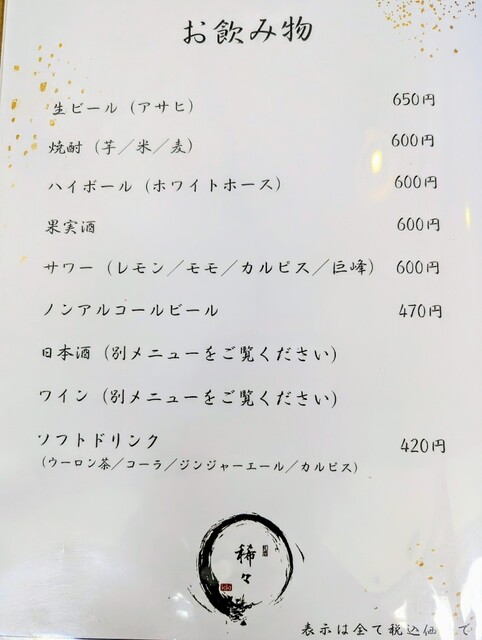 お飲み物
生ビール（アサヒ） 650円
焼酎（芋／米／麦） 600円
ハイボール（ホワイトホース） 600円
果実酒 600円
サワー（レモン／モモ／カルピス／巨峰） 600円
ノンアルコールビール 470円
日本酒（別メニューをご覧ください）
ワイン（別メニューをご覧ください）
ソフトドリンク 420円
（ウーロン茶／コーラ／ジンジャーエール／カルピス）
稀々
表示は全て税込価 で